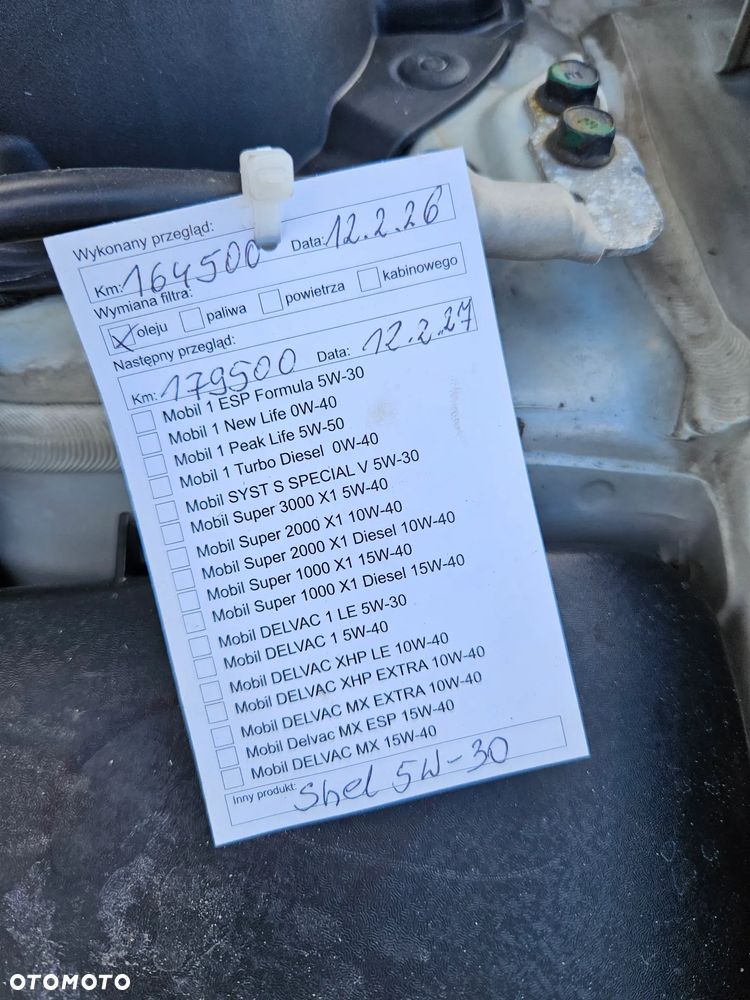 Wykonany przegląd:
Km: 164500 Data: 12.2.26
Wymiana filtra:
X oleju paliwa powietrza kabinowego
Następny przegląd:
Km: 179500 Data: 12.2.27
Mobil 1 ESP Formula 5W-30
Mobil 1 New Life 0W-40
Mobil 1 Peak Life 5W-50
Mobil 1 Turbo Diesel 0W-40
Mobil SYST S SPECIAL V 5W-30
Mobil Super 3000 X1 5W-40
Mobil Super 2000 X1 10W-40
Mobil Super 2000 X1 Diesel 10W-40
Mobil Super 1000 X1 15W-40
Mobil Super 1000 X1 Diesel 15W-40
Mobil DELVAC 1 LE 5W-30
Mobil DELVAC 1 5W-40
Mobil DELVAC XHP LE 10W-40
Mobil DELVAC XHP EXTRA 10W-40
Mobil DELVAC MX EXTRA 10W-40
Mobil Delvac MX ESP 15W-40
Mobil DELVAC MX 15W-40
Inny produkt: Shel 5W-30
OTOMOTO